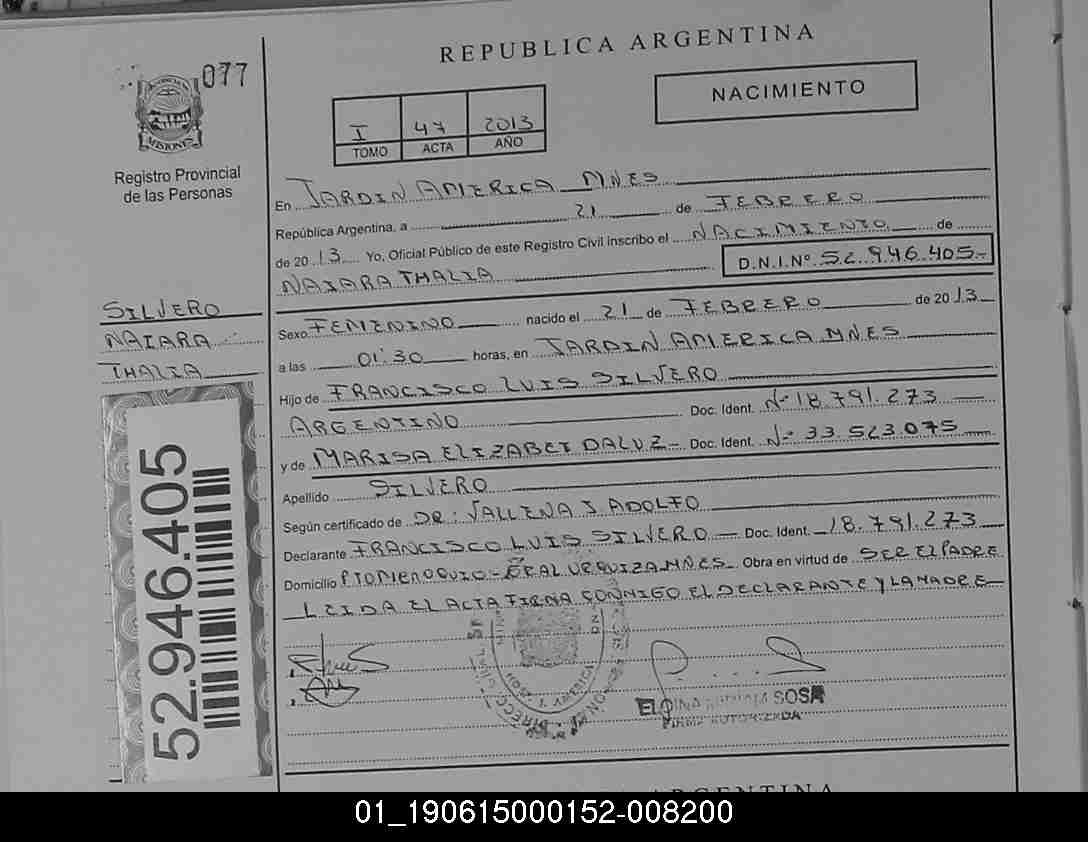 REPUBLICA ARGENTINA
077
NACIMIENTO
I 47 2013
TOMO ACTA AÑO
MISIONES
Registro Provincial
de las Personas
En JARDIN AMERICA MNES
República Argentina, a 21 de FEBRERO
de 2013 Yo, Oficial Público de este Registro Civil inscribo el NACIMIENTO de
NAIARA THALIA D.N.I.Nº 52.946.405-
SILVERO
NAIARA
THALIA
Sexo FEMENINO nacido el 21 de FEBRERO de 2013
a las 01:30 horas, en JARDIN AMERICA MNES
Hijo de FRANCISCO LUIS SILVERO
ARGENTINO Doc. Ident. Nº 18.791.273
y de MARISA ELIZABET DALUZ - Doc. Ident. Nº 33.523.075
Apellido SILVERO
Según certificado de DR: VALLENA J ADOLFO
Declarante FRANCISCO LUIS SILVERO Doc. Ident. 18.791.273
Domicilio GRAL URQUIZA MNES Obra en virtud de SER EL PADRE
LEIDA EL ACTA FIRMA CONMIGO EL DECLARANTE Y LA MADRE
52.946.405
SOSA
FIRMA AUTORIZADA
ARGENTINA
01_190615000152-008200